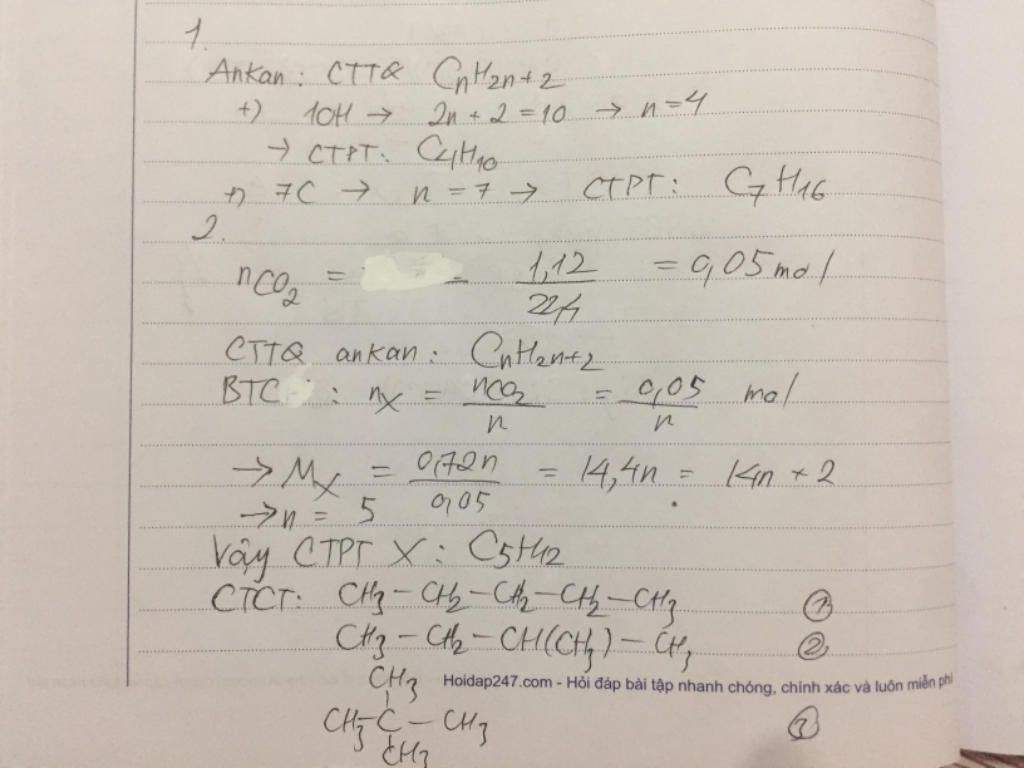 1.
Ankan: CTTQ CnH2n+2
+) 10H → 2n + 2 = 10 → n = 4
→ CTPT: C4H10
+) 7C → n = 7 → CTPT: C7H16
2.
nCO2 = = 1,12/22,4 = 0,05 mol
CTTQ ankan: CnH2n+2
BTC : nX = nCO2/n = 0,05/n mol
→ MX = 0,72n/0,05 = 14,4n = 14n + 2
→ n = 5
Vậy CTPT X: C5H12
CTCT: CH3 – CH2 – CH2 – CH2 – CH3 ①
CH3 – CH2 – CH(CH3) – CH3 ②
CH3
Hoidap247.com - Hỏi đáp bài tập nhanh chóng, chính xác và luôn miễn phí
CH3 – C – CH3 ③
CH3